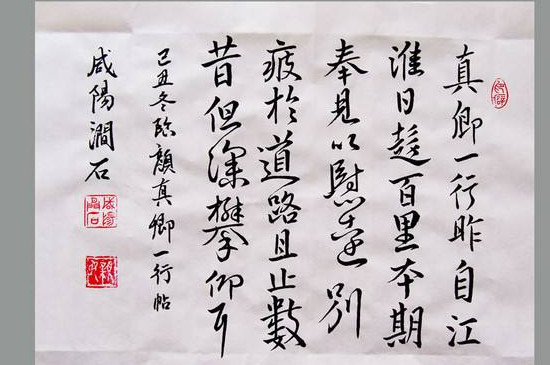 真卿一行昨自江
淮日趍百里本期
奉見以慰遠別
疲於道路且止數
昔但深攀仰耳
己丑冬臨顏真卿一行帖
咸陽澗石